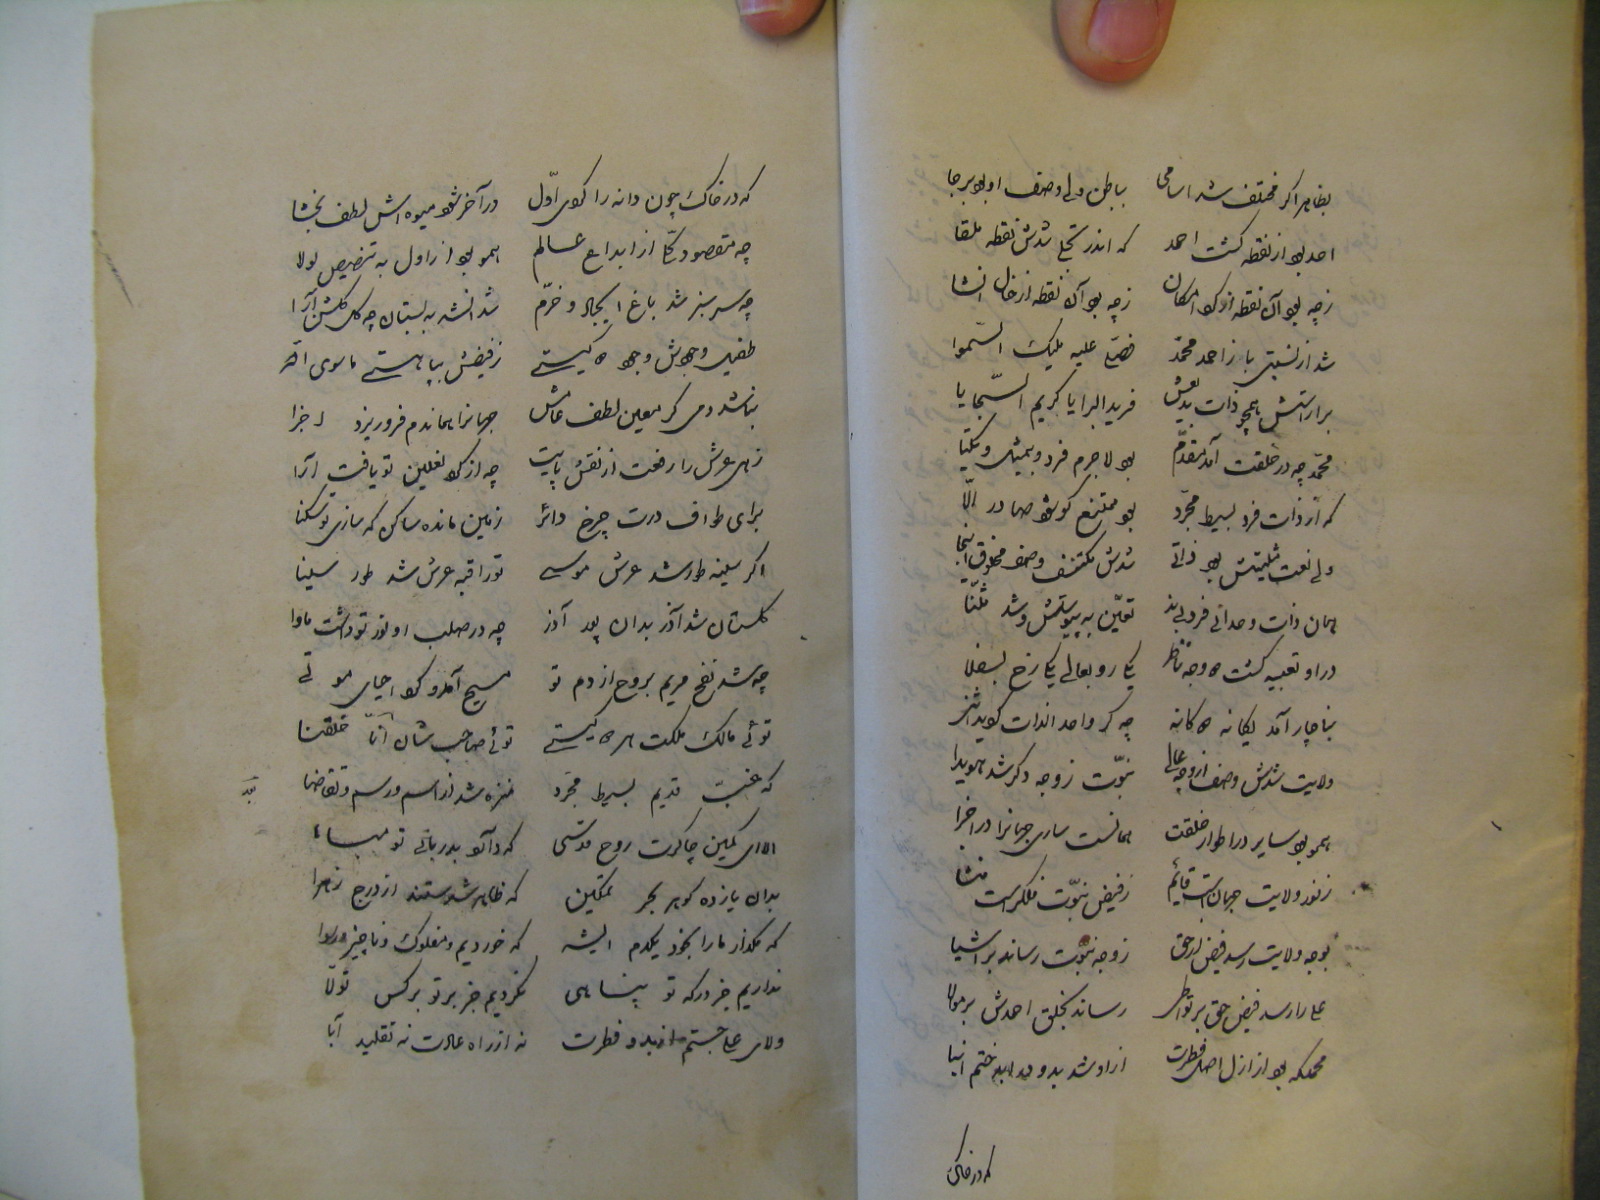 بظاهر اگر مختلف شد اسامی بباطن ولی وصف او بود برجا
احد بود از نقطه گشت احمد که اندر تجلی شدش نقطه ملقا
ز چه بود آن نقطه از کو امکان ز چه بود آن نقطه از خال انشا
شد از نسبتی باز احمد محمّد فصلّ علیه ملیک السّموا
محمّد چه در خلقت آمد مقدّم بود لاجرم فرد و بیمثل و یکتا
که از ذات فرد بسیط مجّرد بود ممتنع کو شود صادر الّا
ولی نعت مثلیتش بود ذاتی شدش مکتنف وصف مخلوق
همان ذات وحدانی فرد تعیّن به پیوستش و شد مثنّا
در او تعبیه گشت وجه یکی رو بعالی یکی رخ بسفلا
بناچار آمد یگانه چه کر واحد اندات کوید
ولایت شدش وصف از وجه عالی نبوّت ز وجه دکر شد هویدا
همو بود سایر در اطوار خلقت همانست ساری جهانرا در اجزا
ز نور ولایت جهان است قائم ز فیض نبوّت فلکراست منشا
بوجه ولایت رسد فیض از حق ز وجه نبوّت رساند بر اشیا
علی را رسد فیض حق بر تواتر رساند بخلق احدش بر مولا
محمد که بود از ازل اصل فطرت از او شد بدو در ابد ختم انبیا
که در خاک
که در خاک چون دانه را کوی اوّل در آخر شود میوه اش لطف بخشا
چه مقصود یکتا از ابداع عالم همو بود از اول به تنصیص لولا
چه سرسبز شد باغ ایجاد و خرّم شد انشه به بستان چه گل گلشن آرا
طفیل وجودش وجود گیتی ز فیضش بپا هستی ماسوی
نباشد دمی گر معین لطف عامش جهانرا هماندم فرو ریزد اجزا
زهی عرش را رفعت از نقش پایت چه از کو نعلین تو یافت آرا
برای طواف درت چرخ دائر زمین مانده ساکن که سازی تو سکنا
اگر سینه طور شد عرش موسی تو را قبه عرش شد طور سینا
گلستان شد آذر بدان پور آذر چه در صلب او نور تو داشت ماوا
چه شد نفخ مریم بروح از دم تو مسیح آمد و کرد احیای موتی
توئی مالک ملکت هر گیتی توئی صاحب شان انّا خلقنا
که غیب قدیم بسیط مجّرد منزه شد از اسم و رسم و تقاضا
الا ای کمین چاکرت روح قدسی که
بدان یازده گوهر بحر تمکین که ظاهر شدستند از درج زهرا
که مگذار ما را بخود یکدم ای شه که خوردیم و مفلوک و ناچیز و رسوا
نداریم جز درگه تو پناهی نکردیم جز بر تو بر کس تولّا
ولای علی جستم از بدو فطرت نه از راه عادت نه تقلید آبا